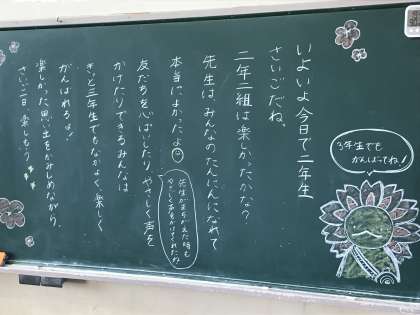 いよいよ今日で二年生
さいごだね。
二年二組は楽しかったかな？
先生は、みんなのたんにんになれて
本当によかったよ
先生がまちがえた時も
やさしく声をかけてくれたね
友だちを心ぱいしたり、やさしく声を
かけたりできるみんなは
きっと三年生でもなかよく、楽しく
がんばれるよ！
楽しかった思い出をかみしめながら、
さいご一日楽しもう
3年生でも
がんばってね！